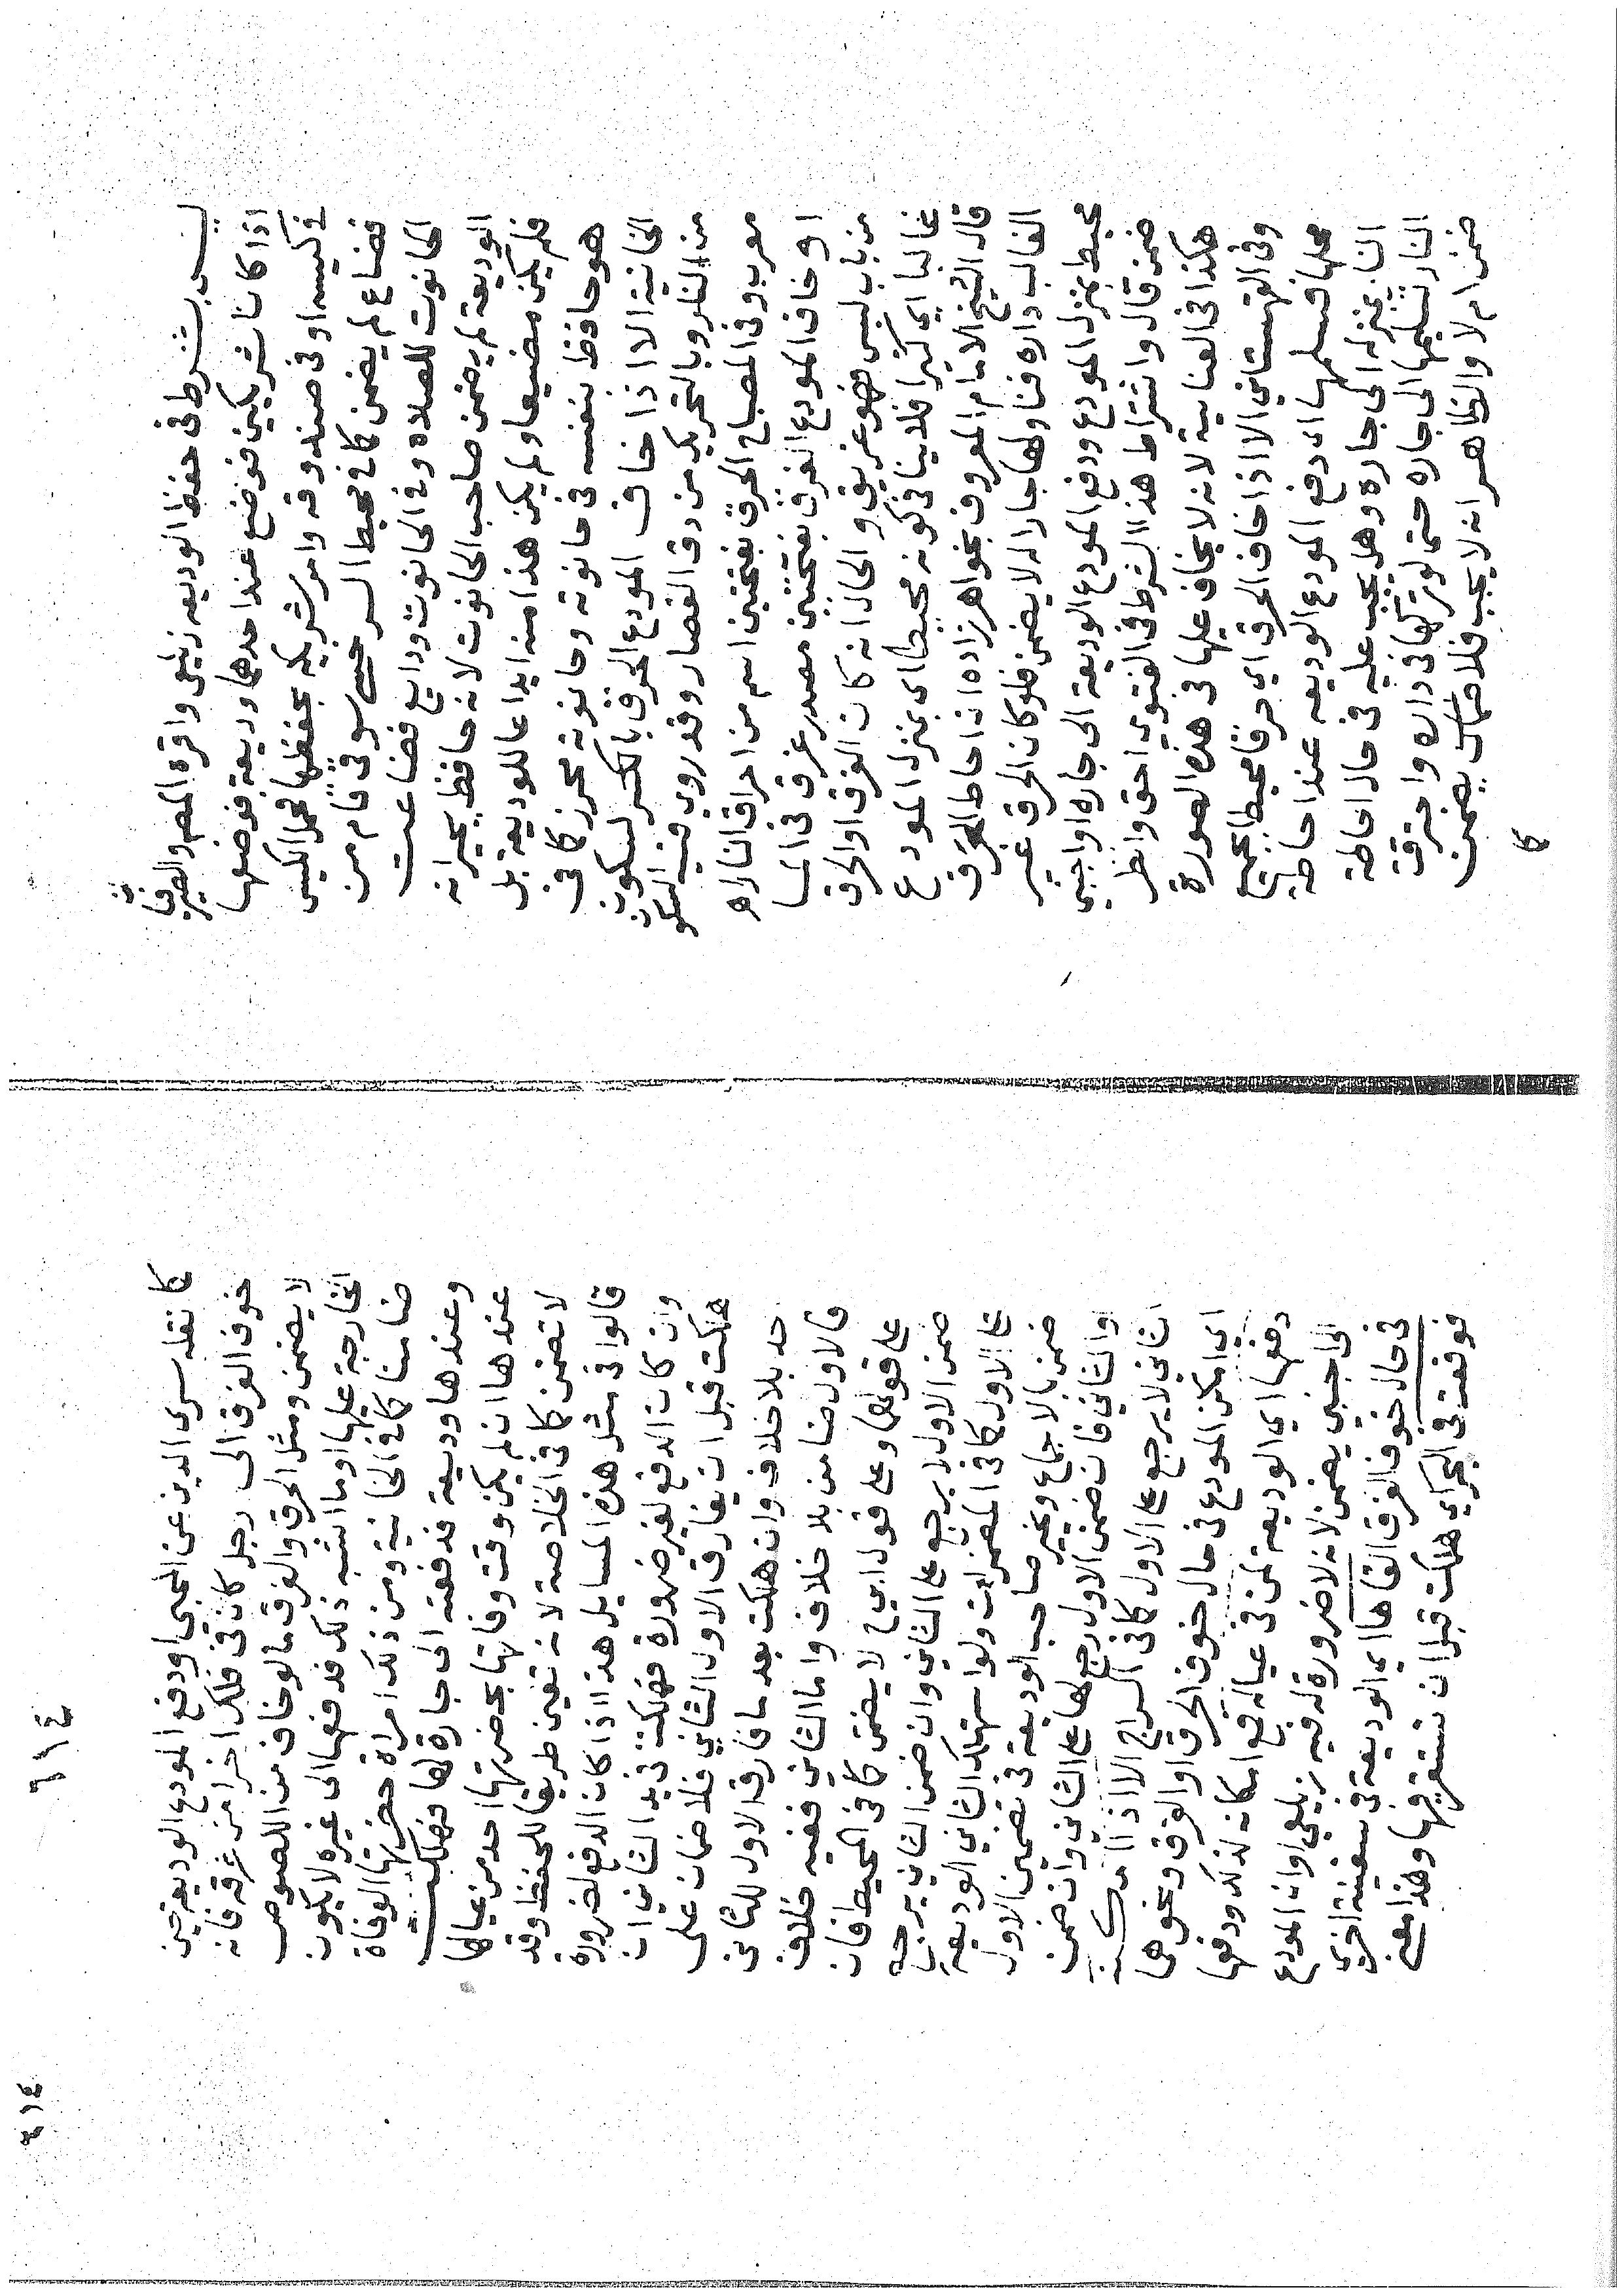 ليس بشرط في حفظ الوديعه زيلعي واقره المصم والصيرفيا
اذا كانا شريكين فوضع عند احدهما وديعة فوضعها
في كيسه او في صندوقه وامر شريكه بحفظها فحمل الكيس
فضاع لم يضمن كما في محيط السرخسي سوقي قام من
الحانوت للصلاه وفي الحانوت ودايع فضاعت
الوديعة لم يضمن صاحب الحانوت لانه حافظ بجيرانه
فلم يكن مضيعا ولم يكن هذا منه ايداعا للوديعة بل
هو حافظ بنفسه في حانوته وحانوته محرز كما في
الخانية الا اذا خاف المودع الحرق بالكسر لسكون
من النار وبالتحريك من دق القصار وقد روي فيه السكون
معرب وفي المصباح الحرق بفتحتين اسم من احراق النار اه
او خاف المودع الغرق بفتحتين مصدر غرق في الما
من باب لبس فهو غريق والحال انه كان الغرق او الحرق
غالبا اي كثيرا فلا ينافي كونه محيطا اي بمنزل المودع
قال الشيخ الامام المعروف بخواهرزاده ان احاط الحرق
الغالب داره فناولها جارا له لا يضمن فلو كان الحرق غير
محيط بمنزل المودع ودفع المودع الوديعة الى جاره او اجنبي
ضمن قال واشتراط هذا الشرط في الفتوي احق وانظر
هكذا في العناية لانه لا يخاف عليها في هذه الصورة
وفي القهستاني الا اذا خاف الحرق اي حرقا محيطا بجميع
محلها فسلمها اى دفع المودع الوديعه عند احاطه
النا بمنزله الى جاره وهل يجب عليه في حال احاطة
النار تسليمها الى جاره حتى لو تركها في داره واحترقت
ضمن ام لا والظاهر انه لا يجب فلا ضمان يضمن
كما
٤١٤
٤١٤
كما نقله سري الدين عن المجتبى او دفع المودع الوديعه حين
خوف الغرق الى رجل كان في فلك اخر امن غرقه فانه
لا يضمن ومثل الحرق والغرق ما لو خاف من اللصوص
الخارجة عليها وما اشبه ذلك فدفعها الى غيره لا يكون
ضامنا كما في الخانية ومن ذلك امراة حضرتها الوفاة
وعندها وديعة فدفعته الى جارة لها فهلكت
عندها ان لم يكن وقت وفاتها بحضرتها احد من عيالها
لا تضمن كما في الخلاصة لانه تعين طريقا للحفظ وقد
قالوا في مثل هذه المسايل هذا اذا كان الدفع لضرورة
وان كان الدفع لغير ضرورة فهلكت في يد الثاني ان
هلكت قبل ان يفارق الاول الثاني فلا ضمان على
حد بلا خلاف وان هلكت بعد ما فارق الاول للثاني
فالاول ضامن بلا خلاف واما الثاني ففيه خلاف
على قولهما وعلى قول ابي ح لا يضمن كما في المحيط فان
ضمن الاول لا يرجع على الثاني وان ضمن الثاني يرجع
على الاول كما في المضمرات ولو استهلك الثاني الوديعه
ضمن بالاجماع ويخير صاحب الوديعة في تضمين الاول
والثاني فان ضمن الاول رجع بها على الثاني وان ضمن
الثاني لا يرجع على الاول كما في السراج الا اذا امكنه
اي امكن المودع في حال خوف الحرق او الغرق ونحوهما
دفعها اي الوديعه لمن في عياله فمع امكانه لذلك ودفعها
الى اجنبي يضمن لانه لا ضرورة له فيه زيلعي وان المودع
في حال خوف الغرق القاها اي الوديعة في سفينة اخرى
فوقعت في البحر اي هلكت قبل ان تستقر فيها وهذا معنى